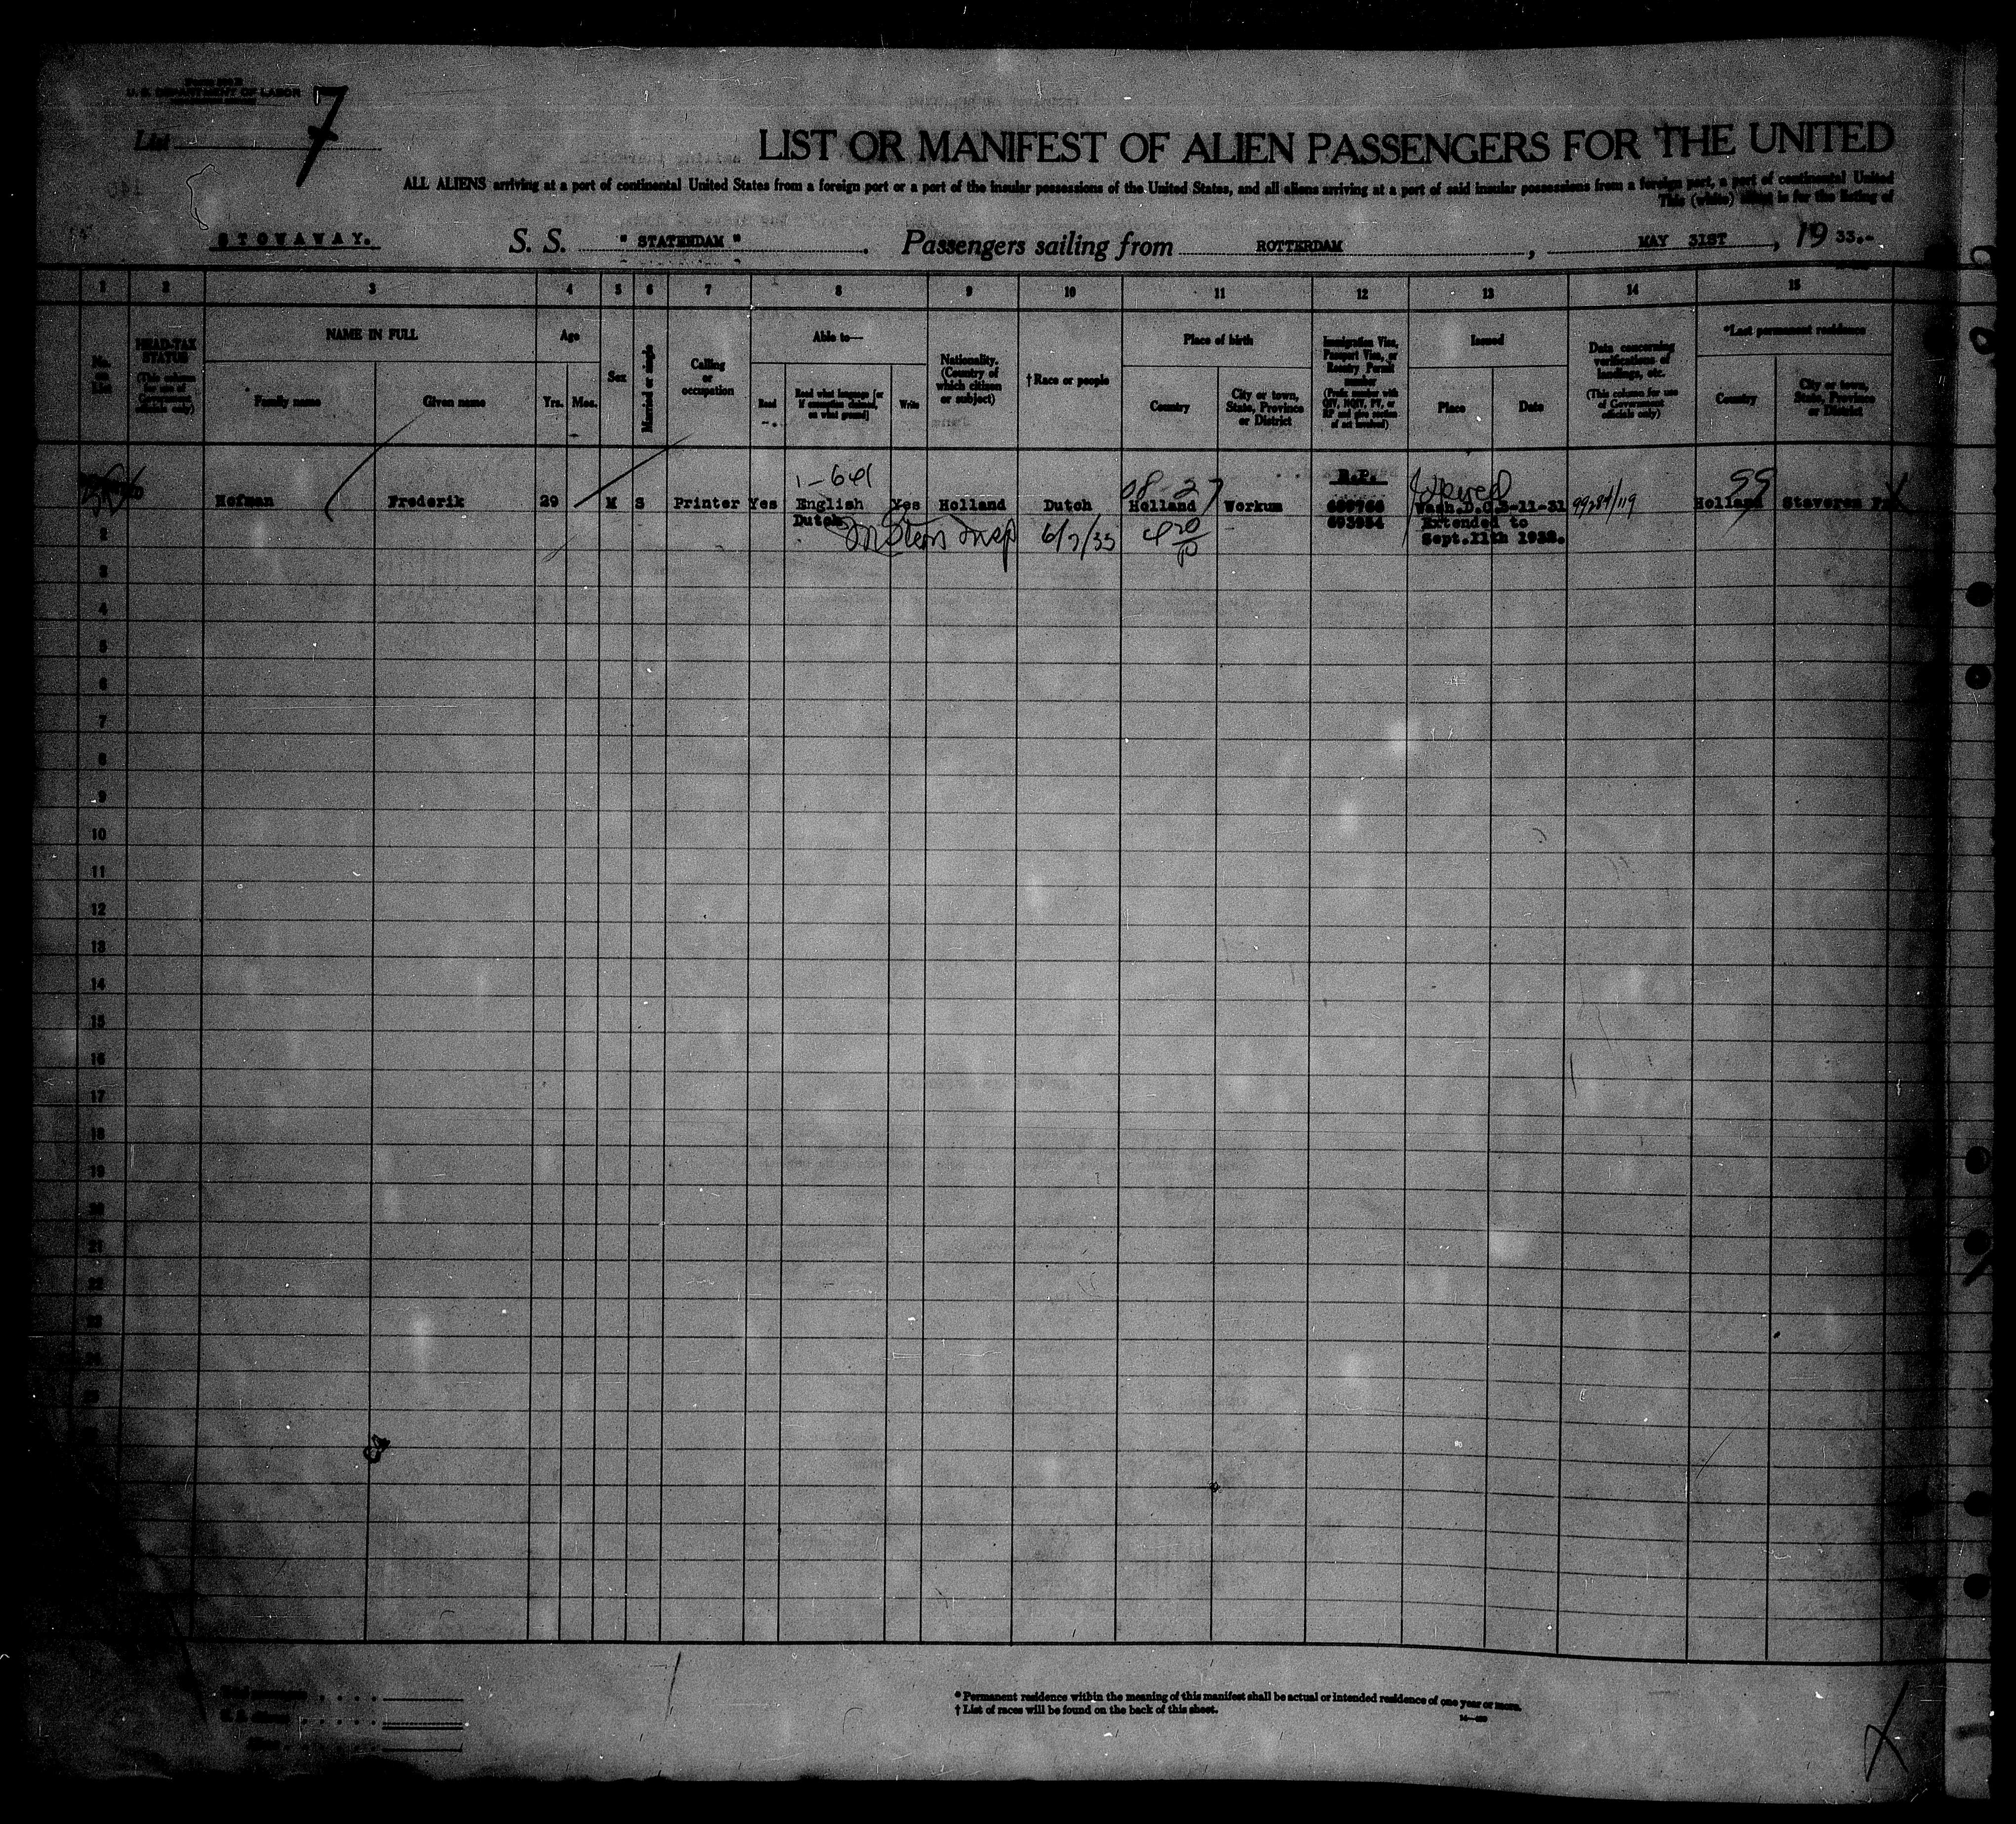 U. S. DEPARTMENT OF LABOR
List 7
LIST OR MANIFEST OF ALIEN PASSENGERS FOR THE UNITED
ALL ALIENS arriving at a port of continental United States from a foreign port or a port of the insular possessions of the United States, and all aliens arriving at a port of said insular possessions from a foreign port, a port of continental United
This (white) sheet is for the listing of
STOWAWAY. S. S. "STATENDAM". Passengers sailing from ROTTERDAM, MAY 31ST, 1933.-
1 2 3 4 5 6 7 8 9 10 11 12 13 14 15
No. on List
HEAD-TAX STATUS (This column for use of Government officials only)
NAME IN FULL
Family name Given name
Age
Yrs. Mos.
Sex
Married or single
Calling or occupation
Able to—
Read Read what language [or if exemption claimed, on what ground] Write
Nationality. (Country of which citizen or subject)
†Race or people
Place of birth
Country City or town, State, Province or District
Immigration Visa, Passport Visa, or Reentry Permit number (Prefix number with QIV, NQIV, PV, or RP and give section of act involved)
Issued
Place Date
Data concerning verifications of landings, etc. (This column for use of Government officials only)
*Last permanent residence
Country City or town, State, Province or District
1-641 08-27 R.P. 99
Hofman Frederik 29 M S Printer Yes English Yes Holland Dutch Holland Workum Wash.D.C. 3-11-31 Holland Staveren
Dutch 693954 Extended to
6/7/33 Sept.11th 1932.
2
3
4
5
6
7
8
9
10
11
12
13
14
15
16
17
18
19
20
21
22
23
24
* Permanent residence within the meaning of this manifest shall be actual or intended residence of one year or more.
† List of races will be found on the back of this sheet.